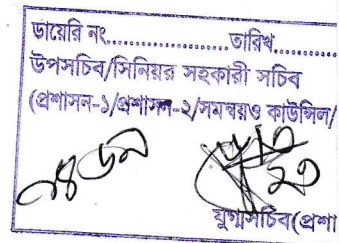 ডায়েরি নং......................তারিখ..............
উপসচিব/সিনিয়র সহকারী সচিব
(প্রশাসন-১/প্রশাসন-২/সমন্বয়ও কাউন্সিল/
যুগ্মসচিব(প্রশা